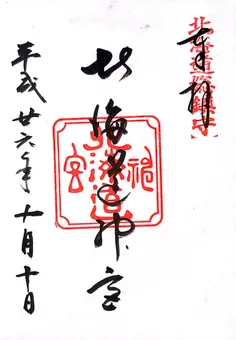 奉拝
北海道総鎮守
北海道神宮
北海道神宮
平成廿六年十月十日